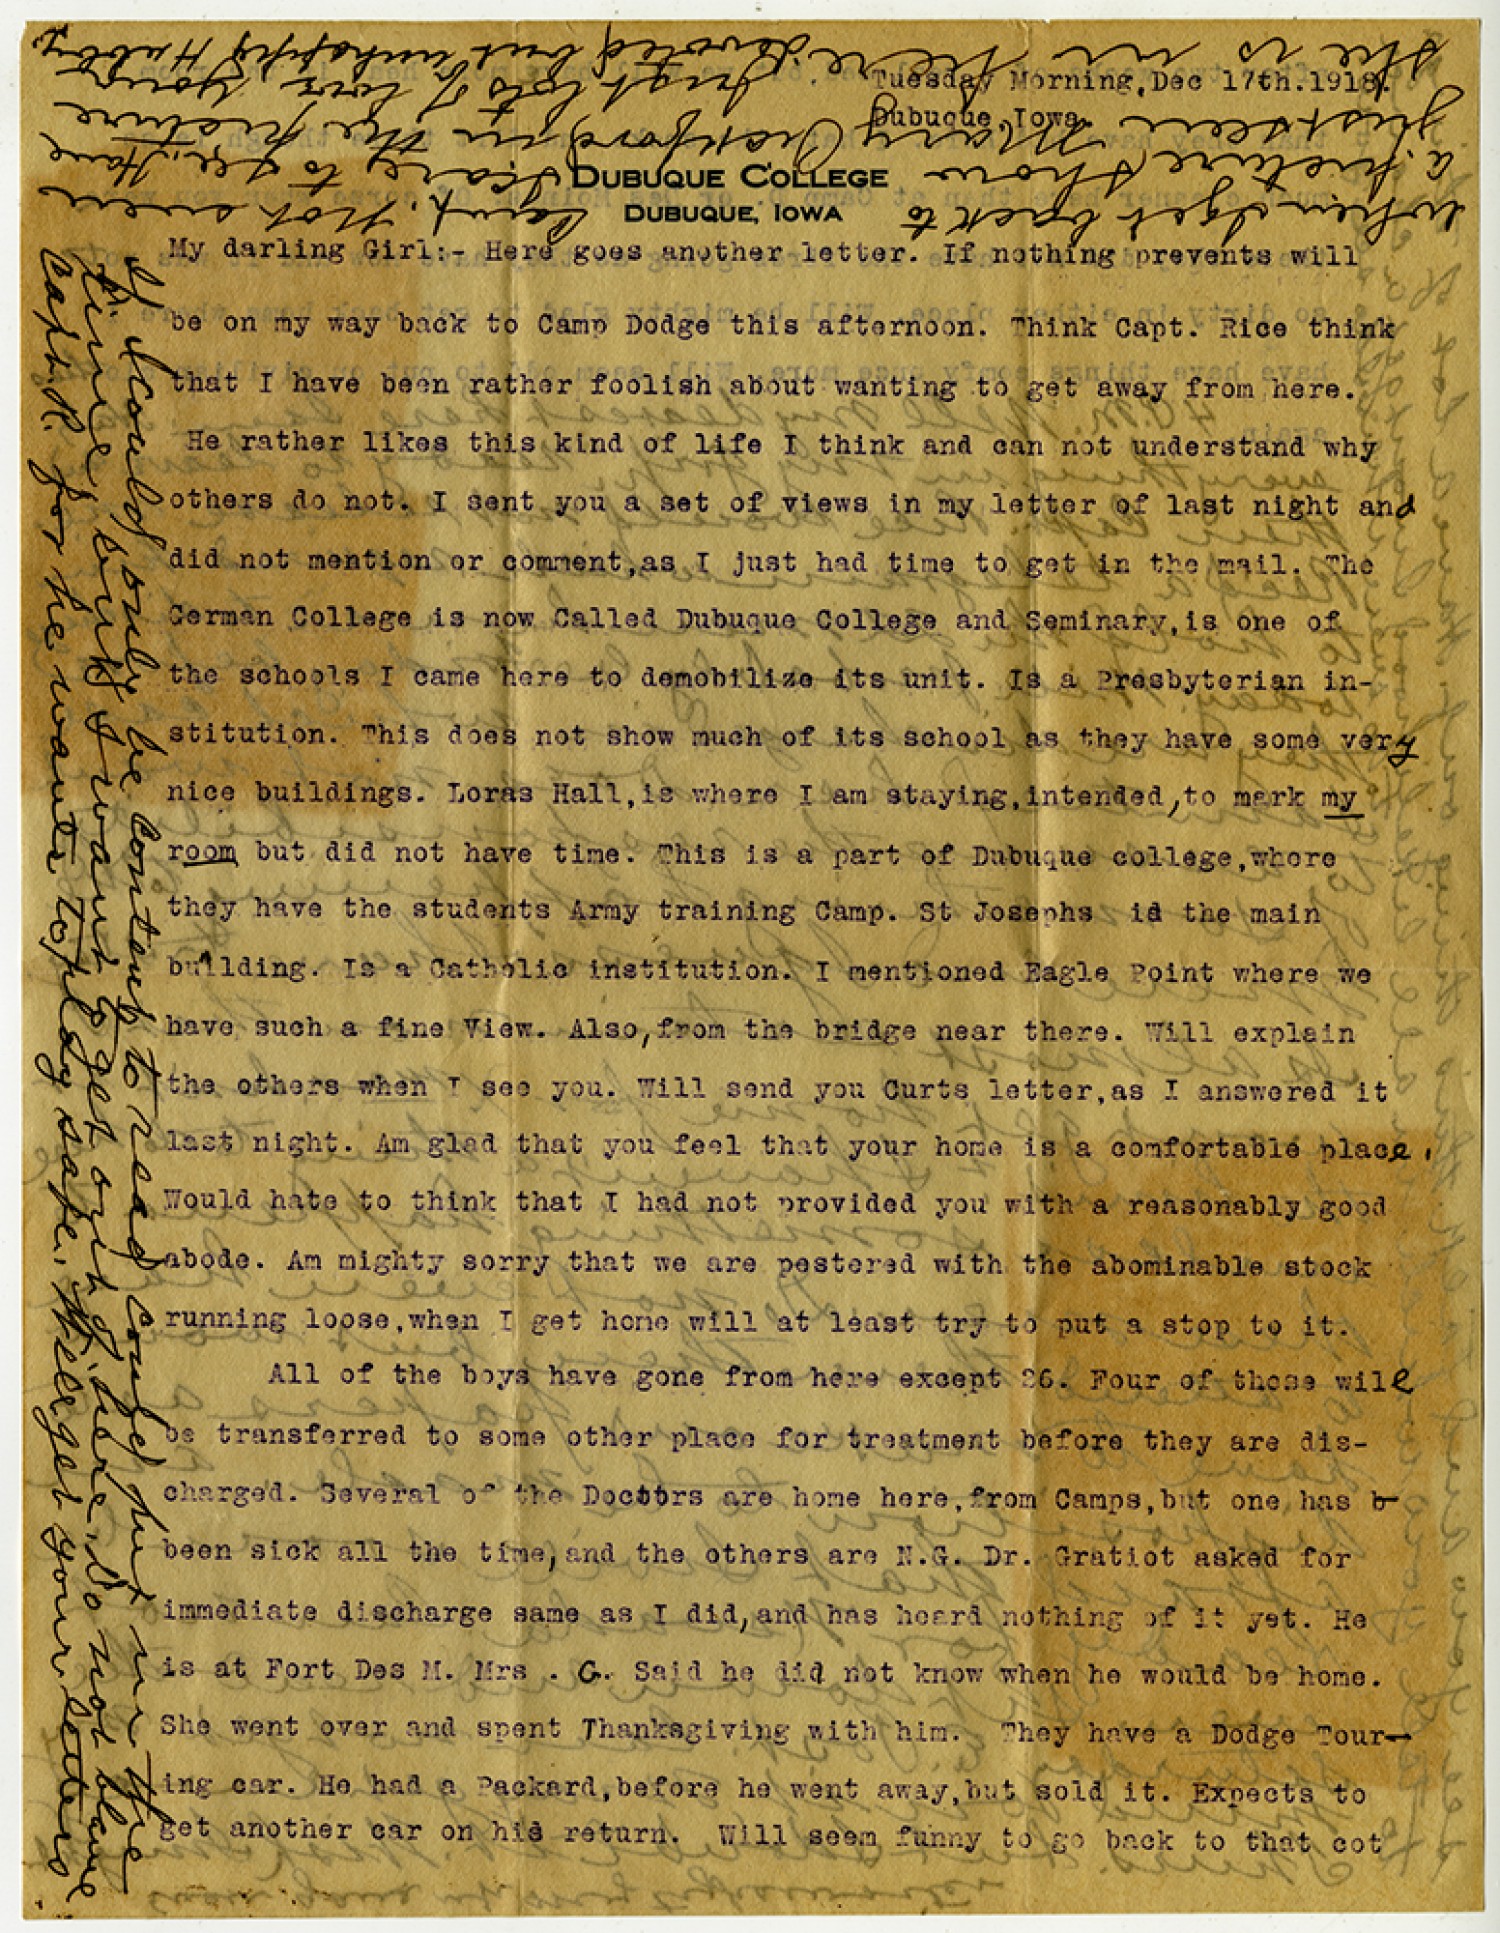 Tuesday Morning,Dec 17th.1918.
Dubuque,Iowa.
DUBUQUE COLLEGE
DUBUQUE, IOWA
My darling Girl:- Here goes another letter. If nothing prevents will
be on my way back to Camp Dodge this afternoon. Think Capt. Rice think
that I have been rather foolish about wanting to get away from here.
He rather likes this kind of life I think and can not understand why
others do not. I sent you a set of views in my letter of last night and
did not mention or comment,as I just had time to get in the mail. The
German College is now Called Dubuque College and Seminary,is one of
the schools I came here to demobilize its unit. Is a Presbyterian in-
stitution. This does not show much of its school as they have some very
nice buildings. Loras Hall,is where I am staying,intended,to mark my
room but did not have time. This is a part of Dubuque college,where
they have the students Army training Camp. St Josephs is the main
building. Is a Catholic institution. I mentioned Eagle Point where we
have such a fine View. Also,from the bridge near there. Will explain
the others when I see you. Will send you Curts letter,as I answered it
last night. Am glad that you feel that your home is a comfortable place.
Would hate to think that I had not provided you with a reasonably good
abode. Am mighty sorry that we are pestered with the abominable stock
running loose,when I get home will at least try to put a stop to it.
All of the boys have gone from here except 26. Four of those will
be transferred to some other place for treatment before they are dis-
charged. Several of the Doctors are home here,from Camps,but one has b
been sick all the time,and the others are N.G. Dr. Gratiot asked for
immediate discharge same as I did,and has heard nothing of it yet. He
is at Fort Des M. Mrs . G. Said he did not know when he would be home.
She went over and spent Thanksgiving with him. They have a Dodge Tour-
ing car. He had a Packard,before he went away,but sold it. Expects to
get another car on his return. Will seem funny to go back to that cot
If I could only be content to read could put in the
time, but I want to get or in g here. Do not blame
Capt. R. for he wants to play safe. Will get your letters
when I get back to Camp. Not seen
a picture show scarce to see. Have
just seen Mary Pickford in the picture
She is in here. Just lots of love your
devoted but unhappy Hubby